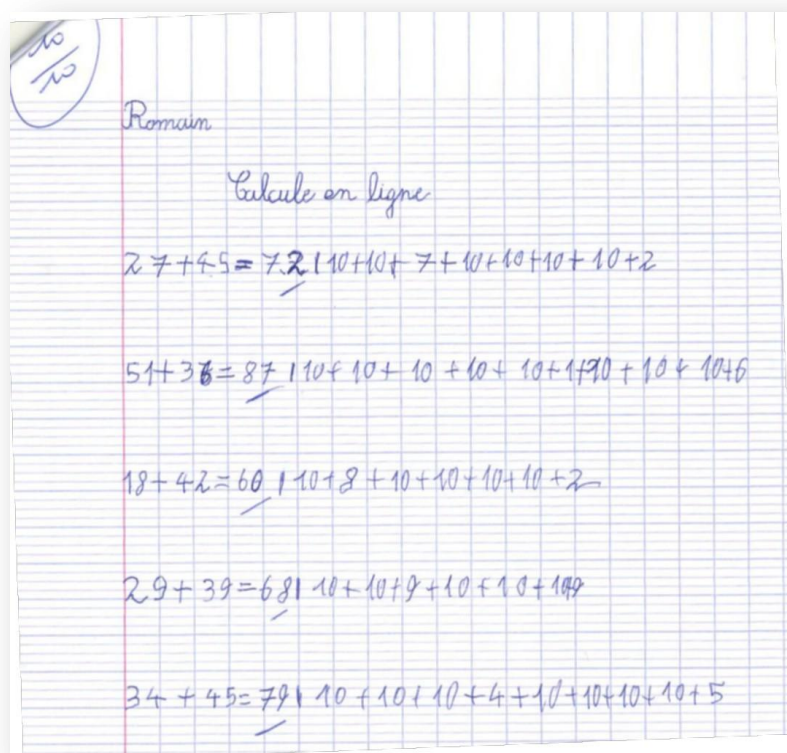 10
10
Romain
Calcule en ligne
27+45=72|10+10+7+10+10+10+10+2
51+36=87|10+10+10+10+10+1+10+10+10+6
18+42=60|10+8+10+10+10+10+2
29+39=68|10+10+9+10+10+10+9
34+45=79|10+10+10+4+10+10+10+10+5